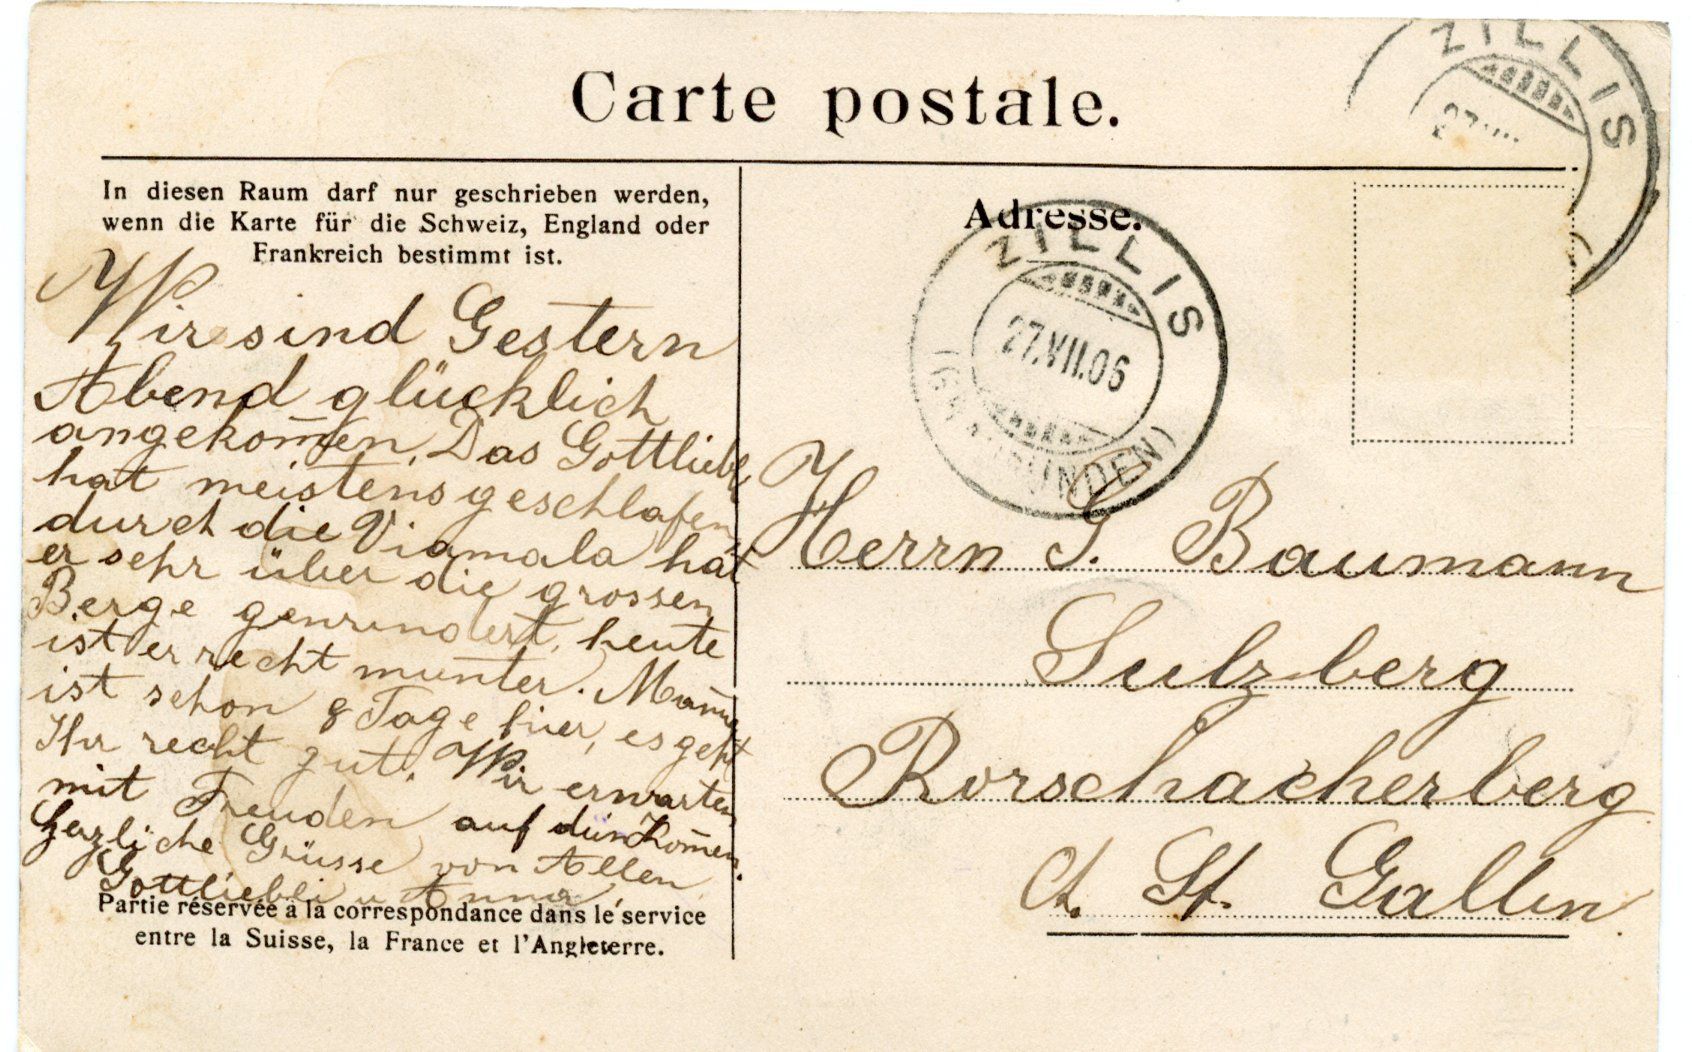 Carte postale.
In diesen Raum darf nur geschrieben werden,
wenn die Karte für die Schweiz, England oder
Frankreich bestimmt ist.
Wir sind Gestern
Abend glücklich
angekom̅en. Das Gottliebli
hat meistens geschlafen,
durch die Viamala hat
er sehr über die grossen
Berge genrundert, heute
ist er recht munter. Mam̅a
ist schon 8 Tage hier, es geht
Ihr recht gut. Wir erwarten
mit Freuden auf dein Kom̅en.
Herzliche Grüsse von Allen
Gottliebli u Anna
Partie réservée à la correspondance dans le service
entre la Suisse, la France et l'Angleterre.
Adresse.
ZILLIS
27.VII.06
(GRAUBÜNDEN)
ZILLIS
27.VII.
Herrn G. Baumann
Sulzberg
Rorschacherberg
Ct. St. Gallen